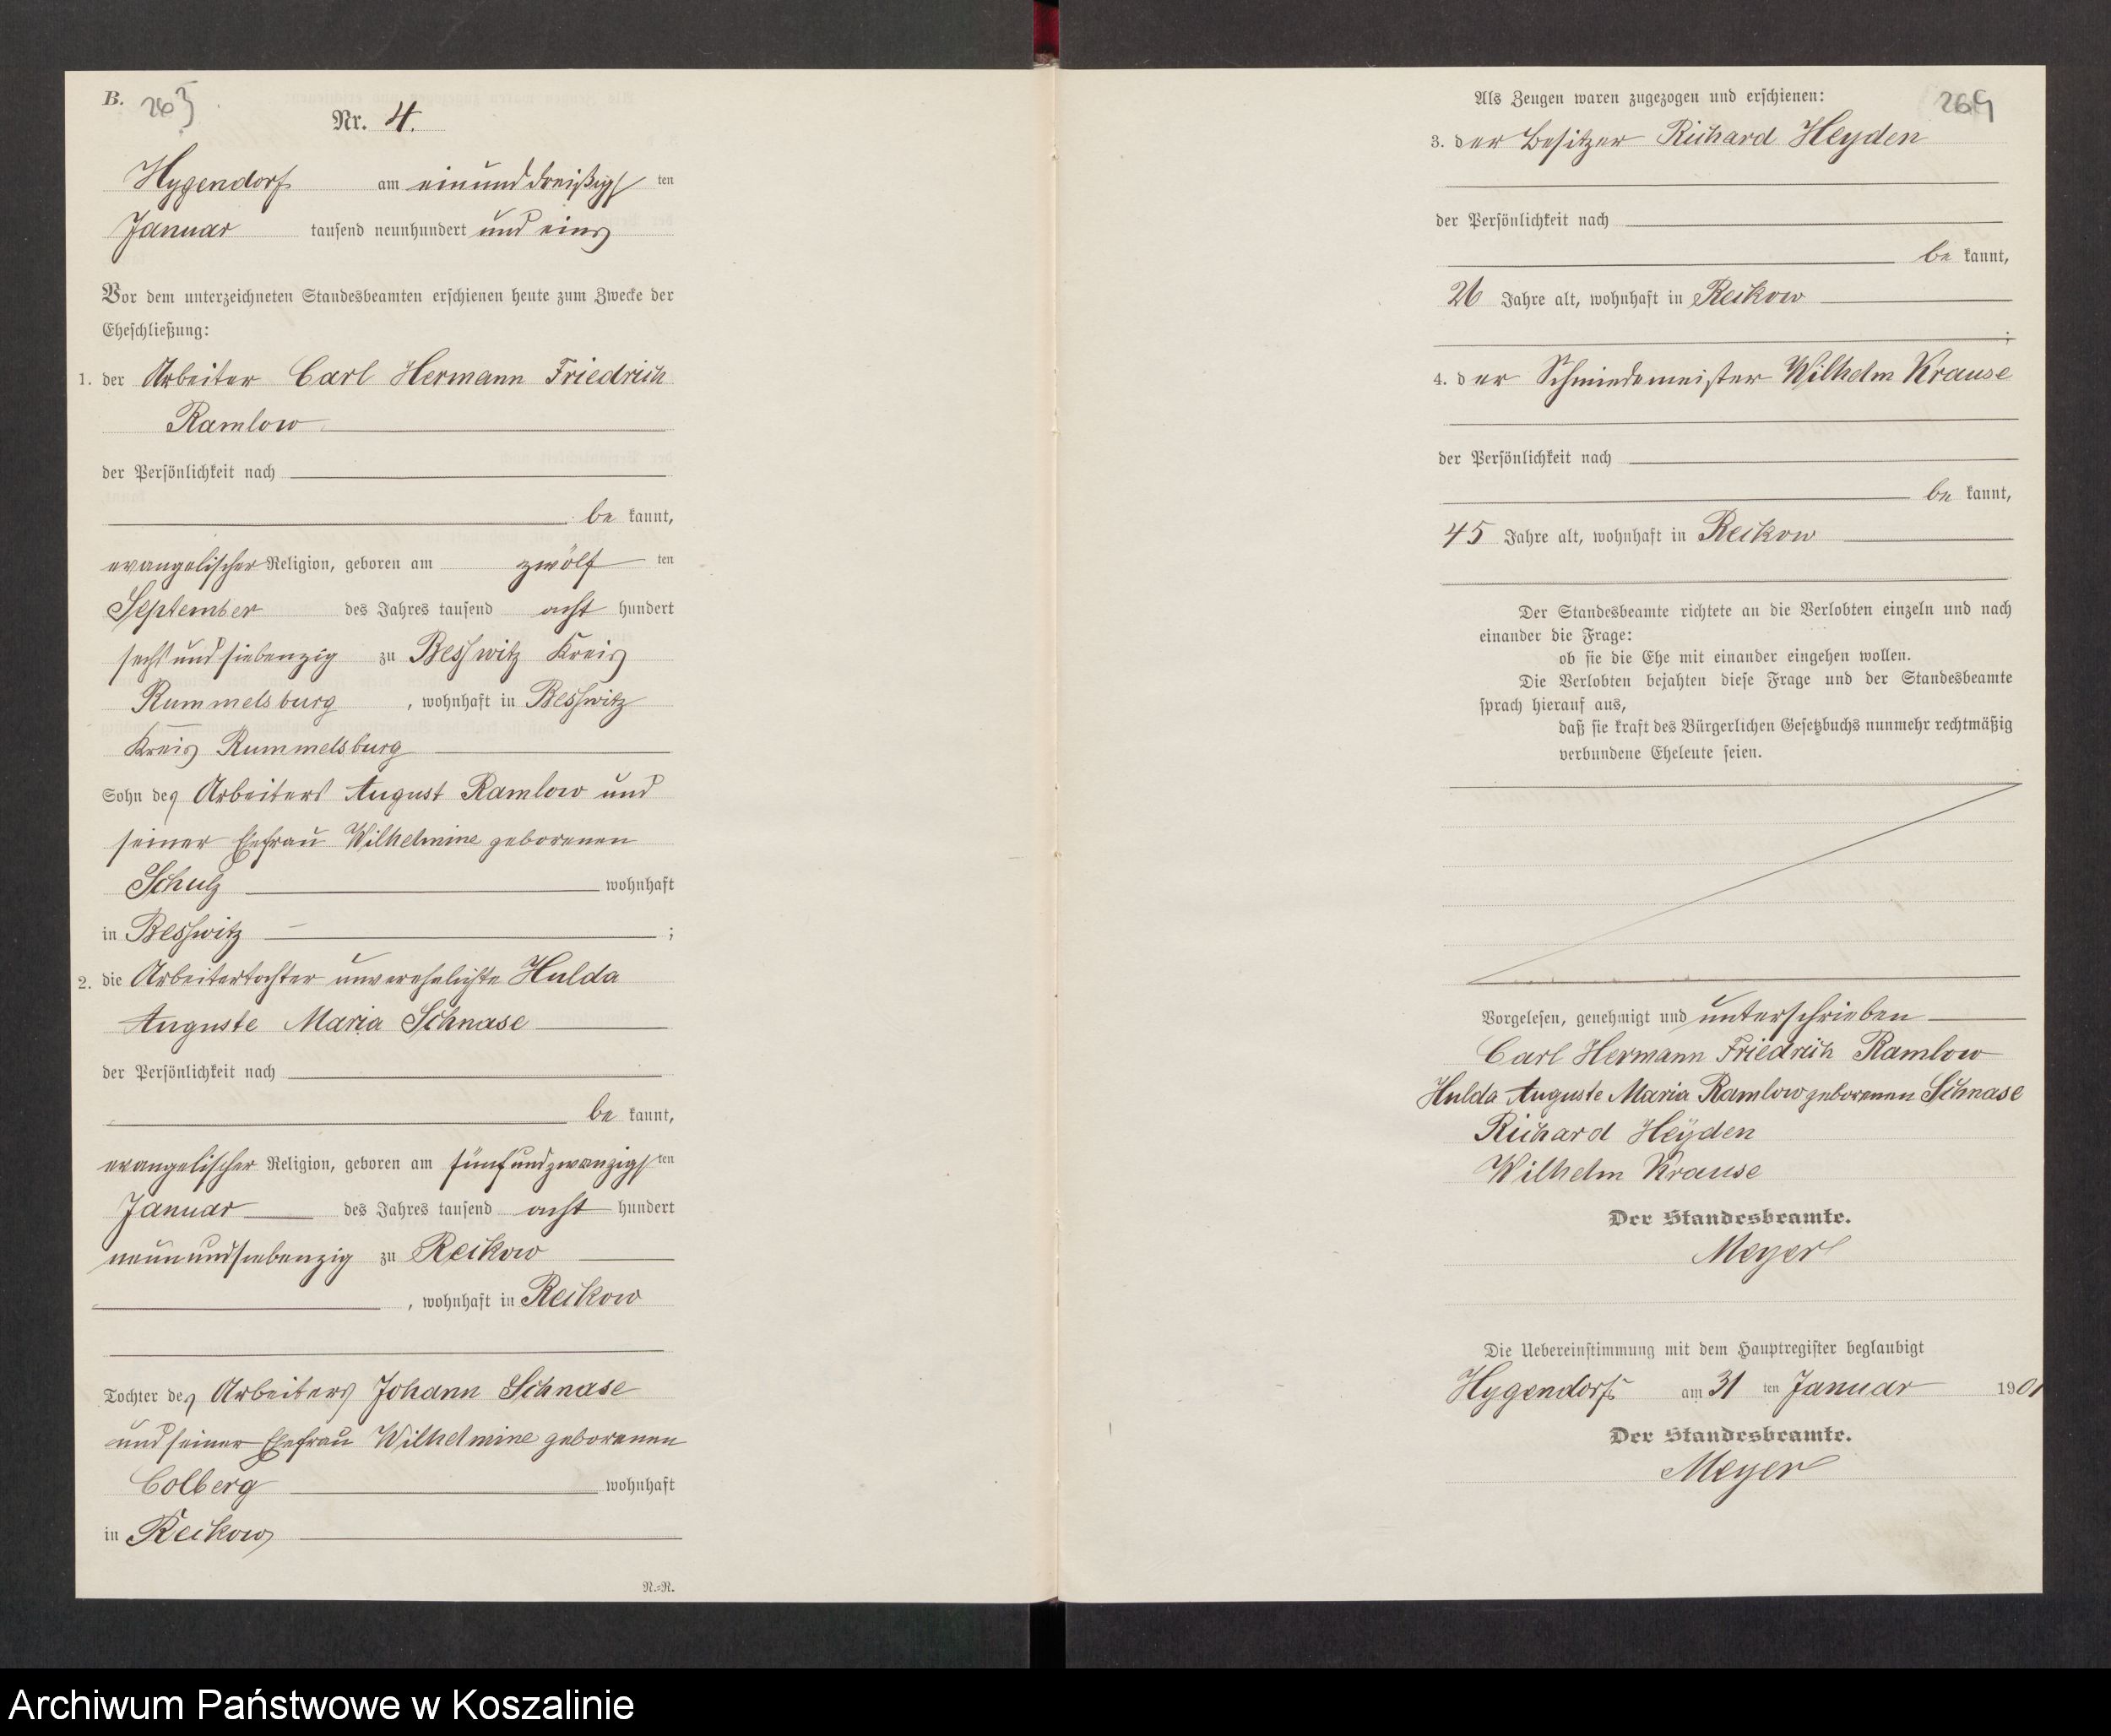 B. 263
Nr. 4.
Hygendorf am einunddreißigsten
Januar tausend neunhundert und eins
Vor dem unterzeichneten Standesbeamten erschienen heute zum Zwecke der
Eheschließung:
1. der Arbeiter Carl Hermann Friedrich
Ramlow
der Persönlichkeit nach
be kannt,
evangelischer Religion, geboren am zwölf ten
September des Jahres tausend acht hundert
sechsundsiebenzig zu Besswitz Kreis
Rummelsburg, wohnhaft in Besswitz
Kreis Rummelsburg
Sohn des Arbeiters August Ramlow und
seiner Ehefrau Wilhelmine geborenen
Schulz wohnhaft
in Besswitz ;
2. die Arbeitertochter unverehelichte Hulda
Auguste Maria Schnase
der Persönlichkeit nach
be kannt,
evangelischer Religion, geboren am fünfundzwanzigsten
Januar des Jahres tausend acht hundert
neunundsiebenzig zu Reikow
, wohnhaft in Reikow
Tochter des Arbeiters Johann Schnase
und seiner Ehefrau Wilhelmine geborenen
Colberg wohnhaft
in Reikow
N.=N.
Als Zeugen waren zugezogen und erschienen: 264
3. der Besitzer Richard Heyden
der Persönlichkeit nach
be kannt,
26 Jahre alt, wohnhaft in Reikow
;
4. der Schmiedemeister Wilhelm Krause
der Persönlichkeit nach
be kannt,
45 Jahre alt, wohnhaft in Reikow
Der Standesbeamte richtete an die Verlobten einzeln und nach
einander die Frage:
ob sie die Ehe mit einander eingehen wollen.
Die Verlobten bejahten diese Frage und der Standesbeamte
sprach hierauf aus,
daß sie kraft des Bürgerlichen Gesetzbuchs nunmehr rechtmäßig
verbundene Eheleute seien.
Vorgelesen, genehmigt und unterschrieben
Carl Hermann Friedrich Ramlow
Hulda Auguste Maria Ramlow geborenen Schnase
Richard Heÿden
Wilhelm Krause
Der Standesbeamte.
Meyer
Die Uebereinstimmung mit dem Hauptregister beglaubigt
Hygendorf am 31 ten Januar 1901
Der Standesbeamte.
Meyer
Archiwum Państwowe w Koszalinie